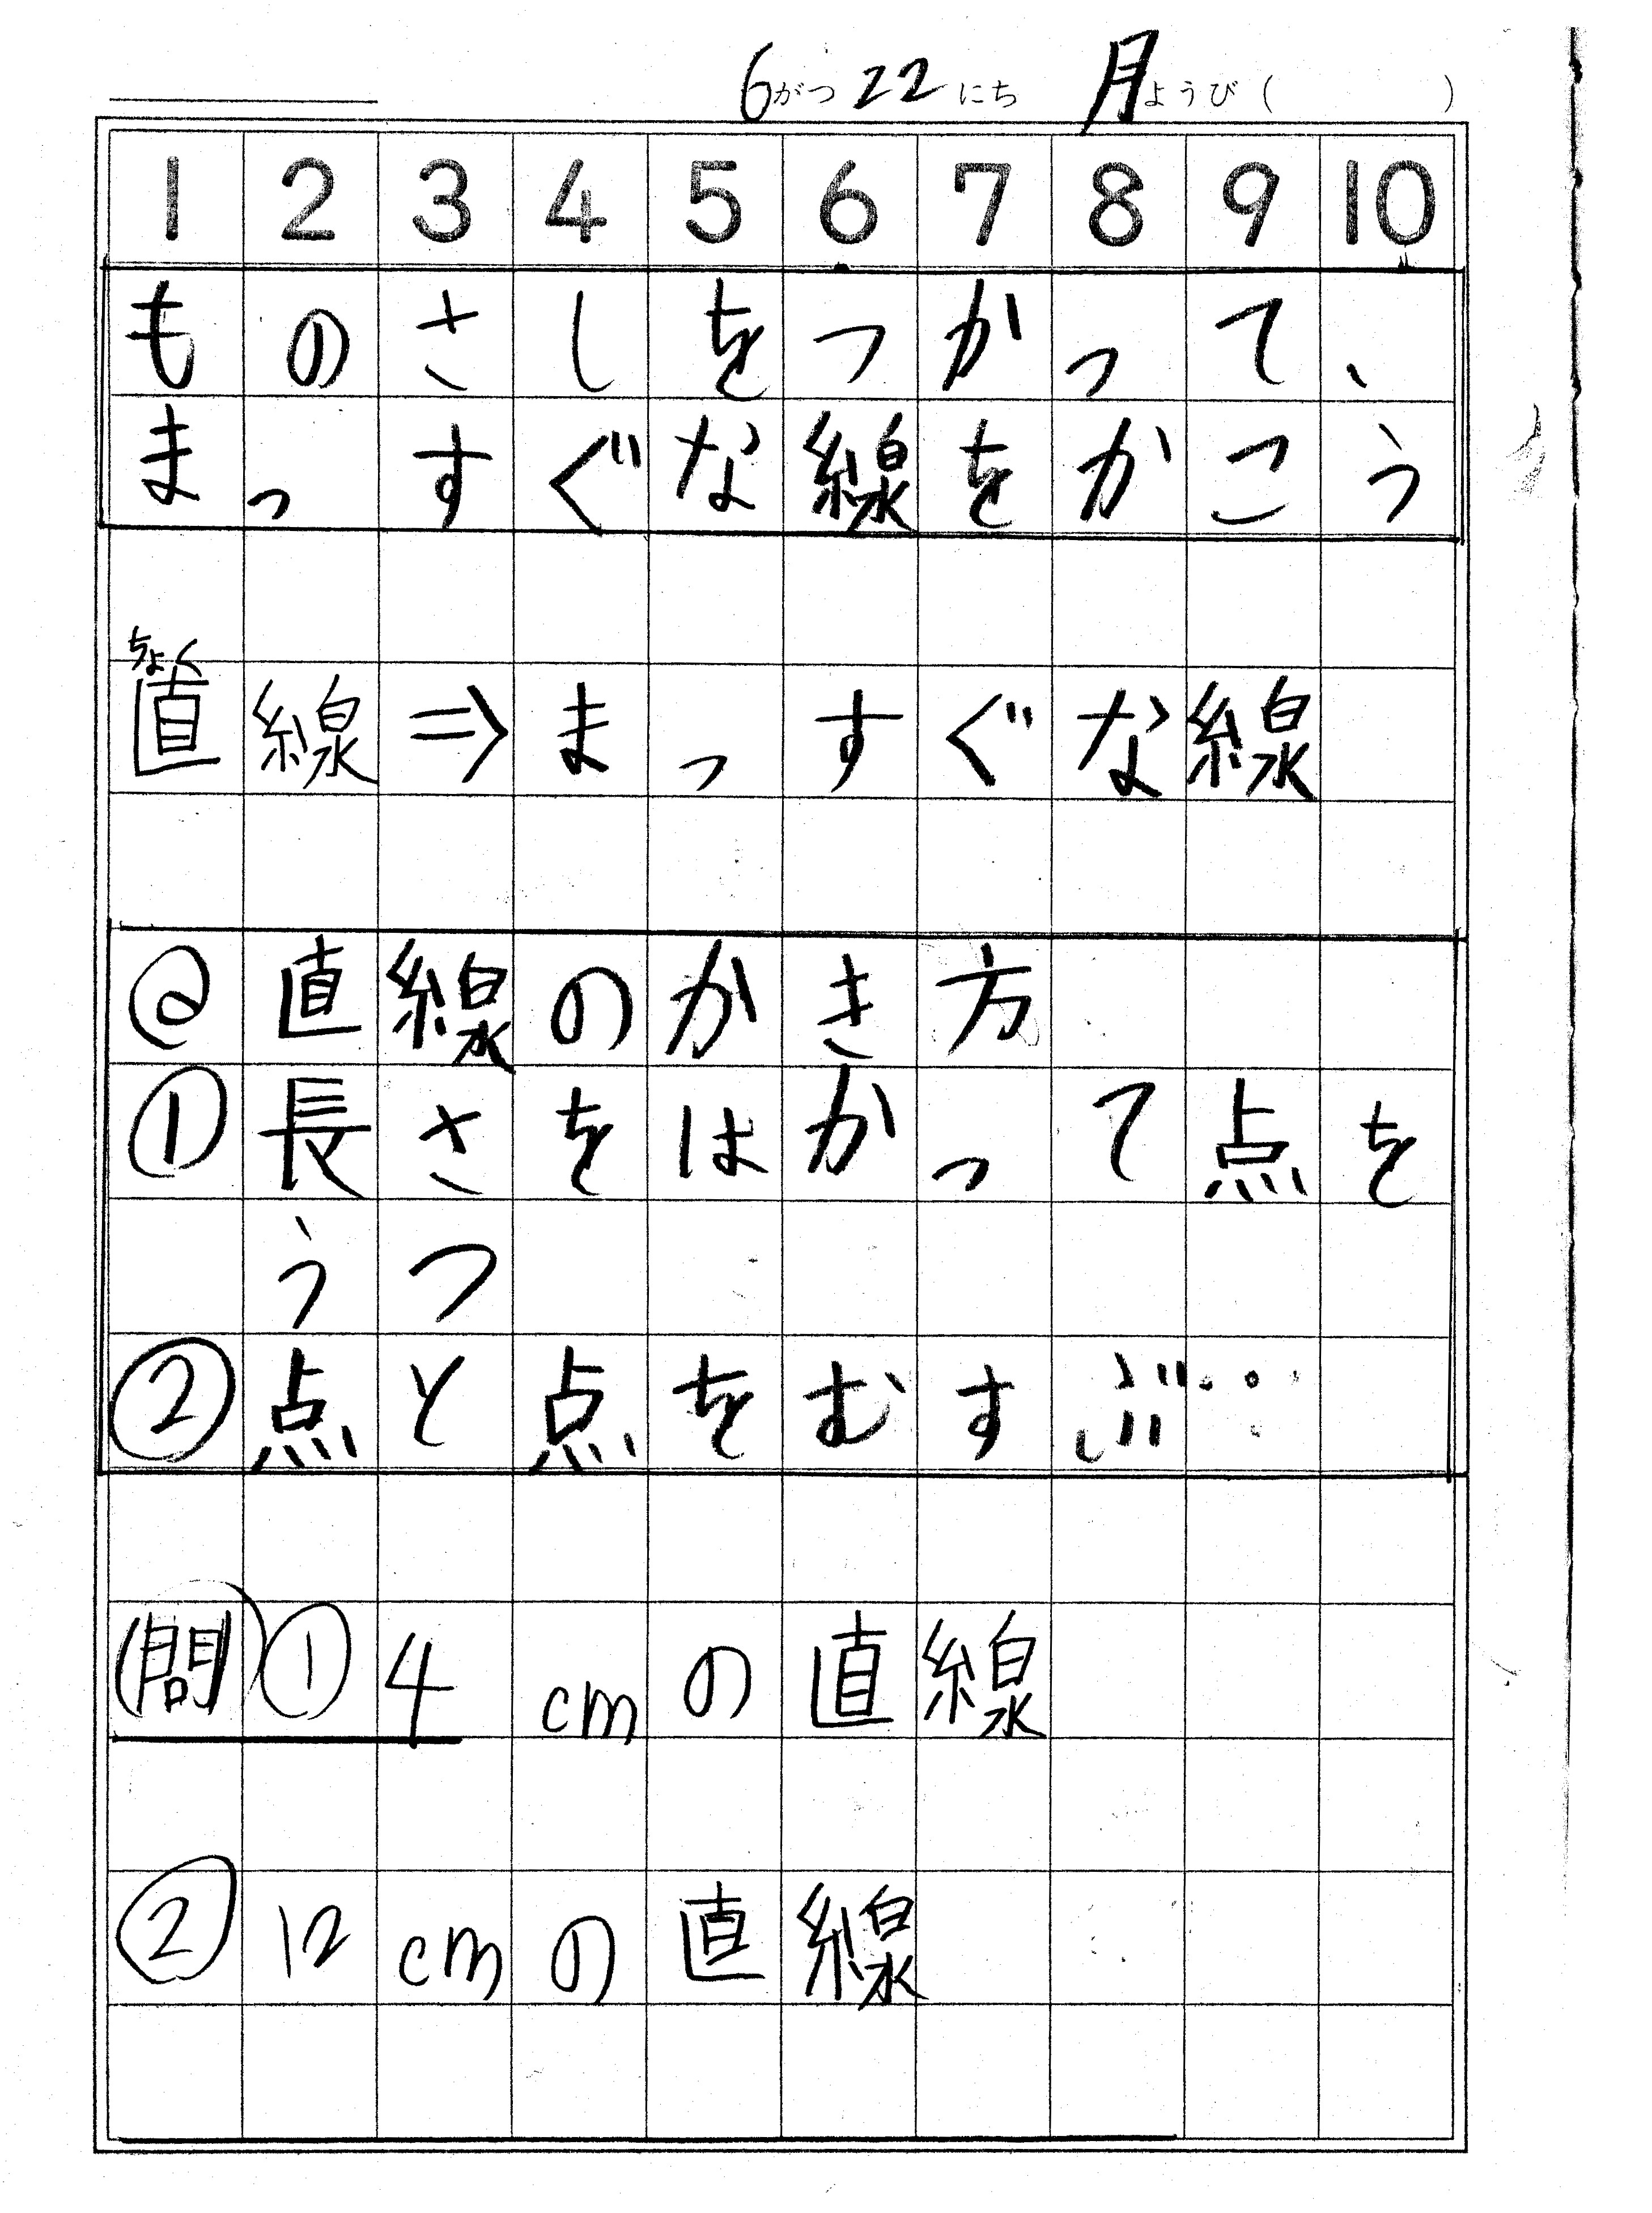 6がつ22にち 月ようび( )
1 2 3 4 5 6 7 8 9 10
ものさしをつかって、
まっすぐな線をかこう
ちょく
直線⇒まっすぐな線
直線のかき方
①長さをはかって点を
うつ
②点と点をむすぶ
問①4cmの直線
②12cmの直線